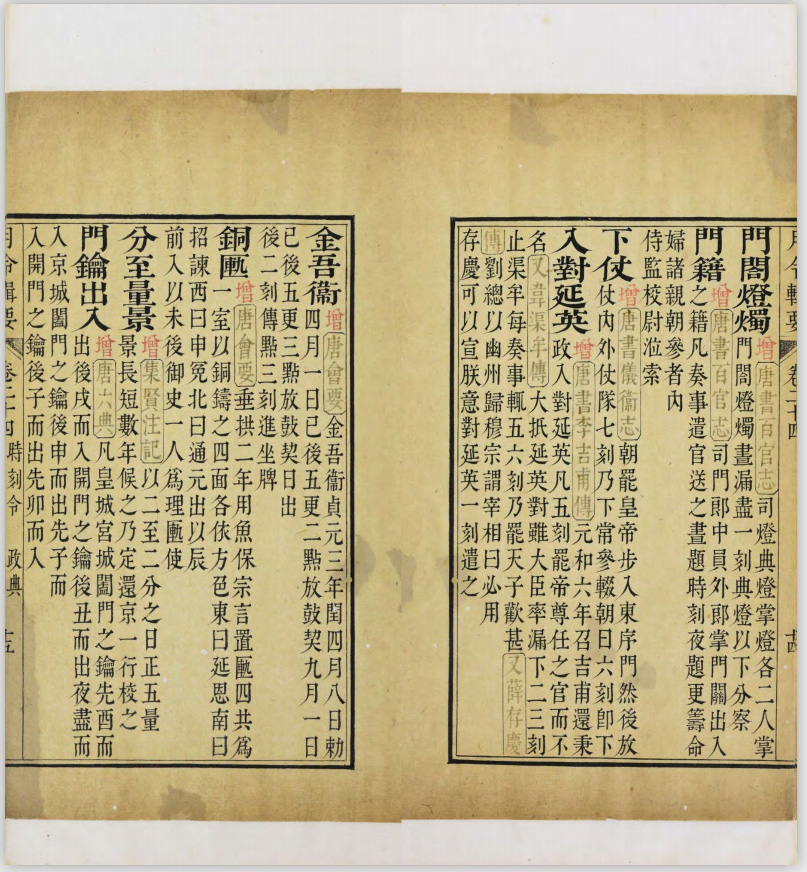 月令輯要 卷二十四 十四
門閤燈燭 增唐書百官志司燈典燈掌燈各二人掌
門閤燈燭晝漏盡一刻典燈以下分察
門籍 增唐書百官志司門郎中員外郎掌門關出入
之籍凡奏事遣官送之晝題時刻夜題更籌命
婦諸親朝參者內
侍監校尉涖索
下仗 增唐書儀衞志朝罷皇帝步入東序門然後放
仗內外仗隊七刻乃下常參輟朝日六刻卽下
入對延英 增唐書李吉甫傳元和六年召吉甫還秉
政入對延英凡五刻罷帝尊任之官而不
名又韋渠牟傳大抵延英對雖大臣率漏下二三刻
止渠牟每奏事輒五六刻乃罷天子歡甚又薛存慶
傳劉總以幽州歸穆宗謂宰相曰必用
存慶可以宣朕意對延英一刻遣之
金吾衞 增唐會要金吾衞貞元三年閏四月八日勅
四月一日已後五更二點放鼓契九月一日
已後五更三點放鼓契日出
後二刻傳點三刻進坐牌
銅匭 增唐會要垂拱二年用魚保宗言置匭四共爲
一室以銅鑄之四面各依方色東曰延恩南曰
招諫西曰申冤北曰通元出以辰
前入以未後御史一人爲理匭使
分至量景 增集賢注記以二至二分之日正五量
景長短數年候之乃定還京一行校之
門鑰出入 增唐六典凡皇城宮城闔門之鑰先酉而
出後戌而入開門之鑰後丑而出夜盡而
入京城闔門之鑰後申而出先子而
入開門之鑰後子而出先卯而入
月令輯要 卷二十四 時刻令 政典 十五